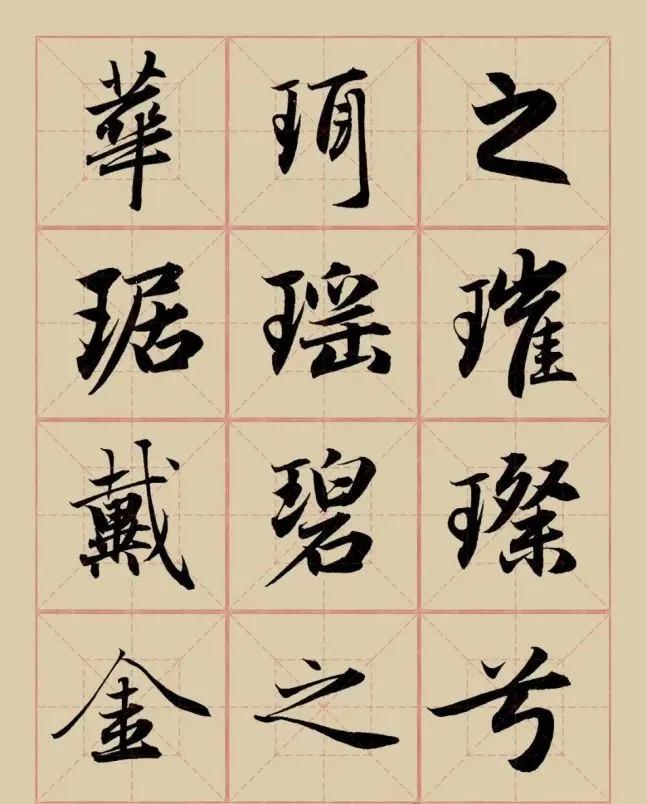 之璀璨兮
珥瑶碧之
華琚戴金